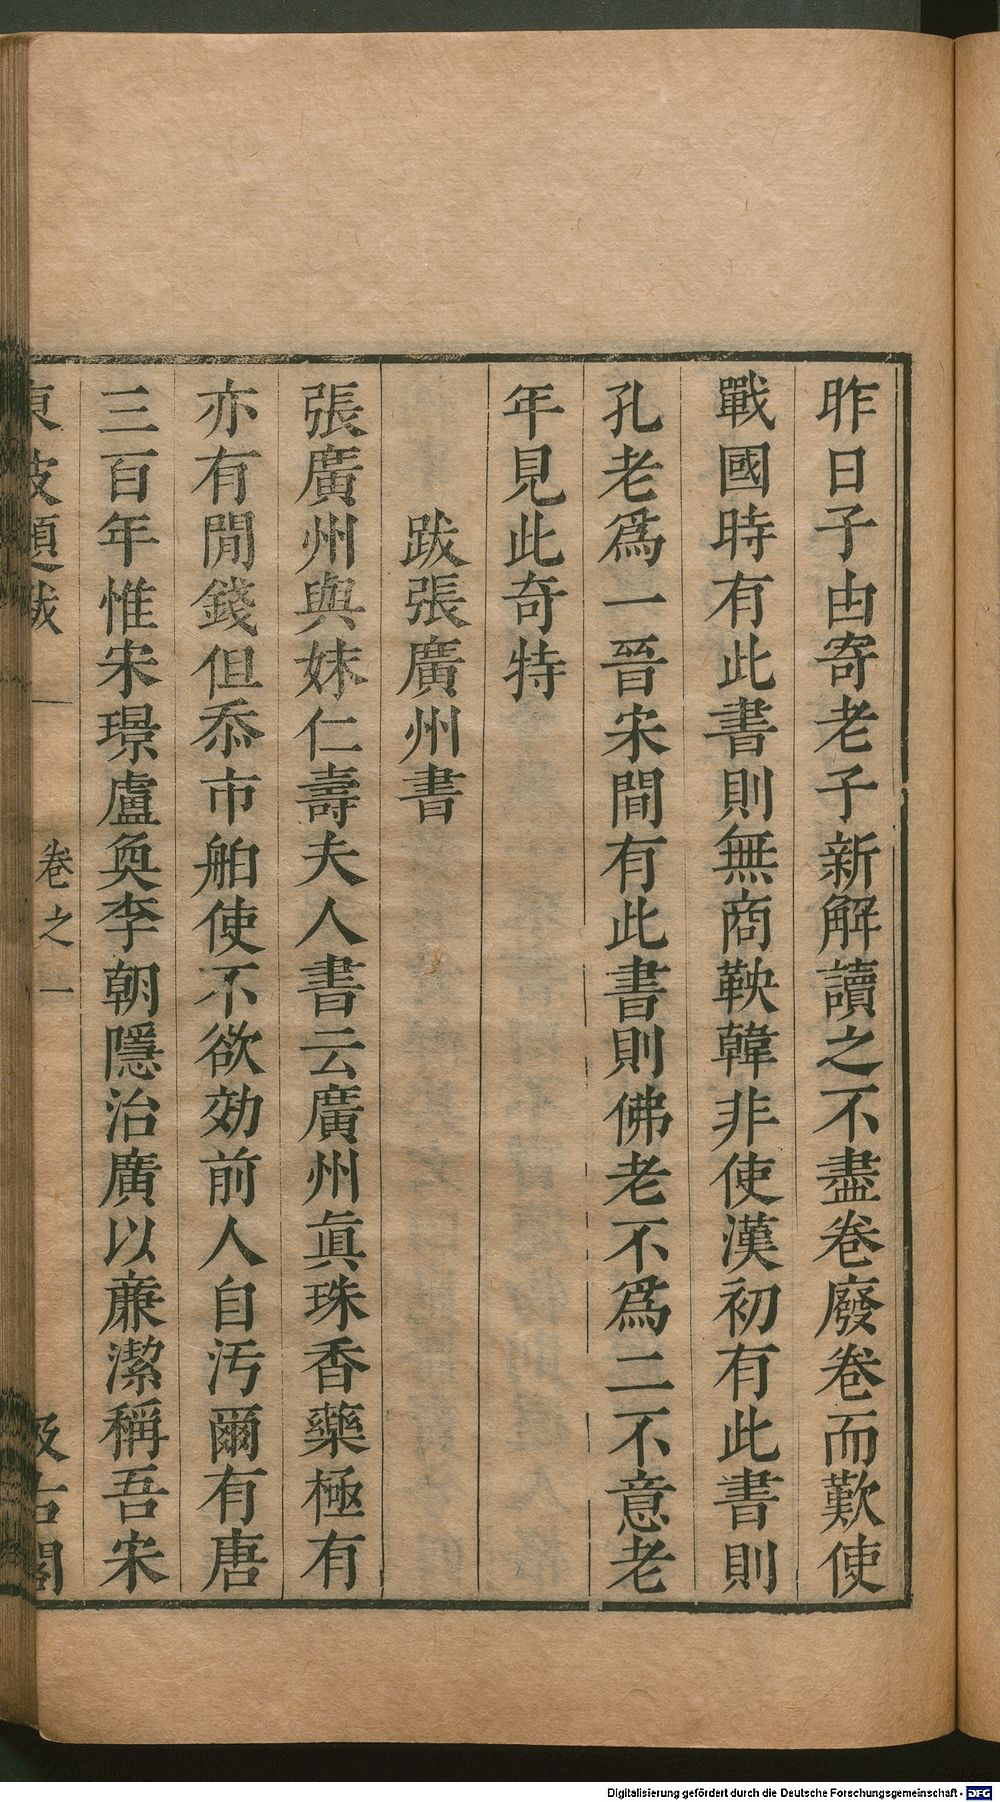 昨日子由寄老子新解讀之不盡卷廢卷而歎使
戰國時有此書則無商鞅韓非使漢初有此書則
孔老爲一晉宋間有此書則佛老不爲二不意老
年見此奇特
跋張廣州書
張廣州與妹仁壽夫人書云廣州眞珠香藥極有
亦有閒錢但忝市舶使不欲効前人自汚爾有唐
三百年惟宋璟盧奐李朝隱治廣以廉潔稱吾宋
東坡題跋 卷之一 汲古閣
Digitalisierung gefördert durch die Deutsche Forschungsgemeinschaft - DFG